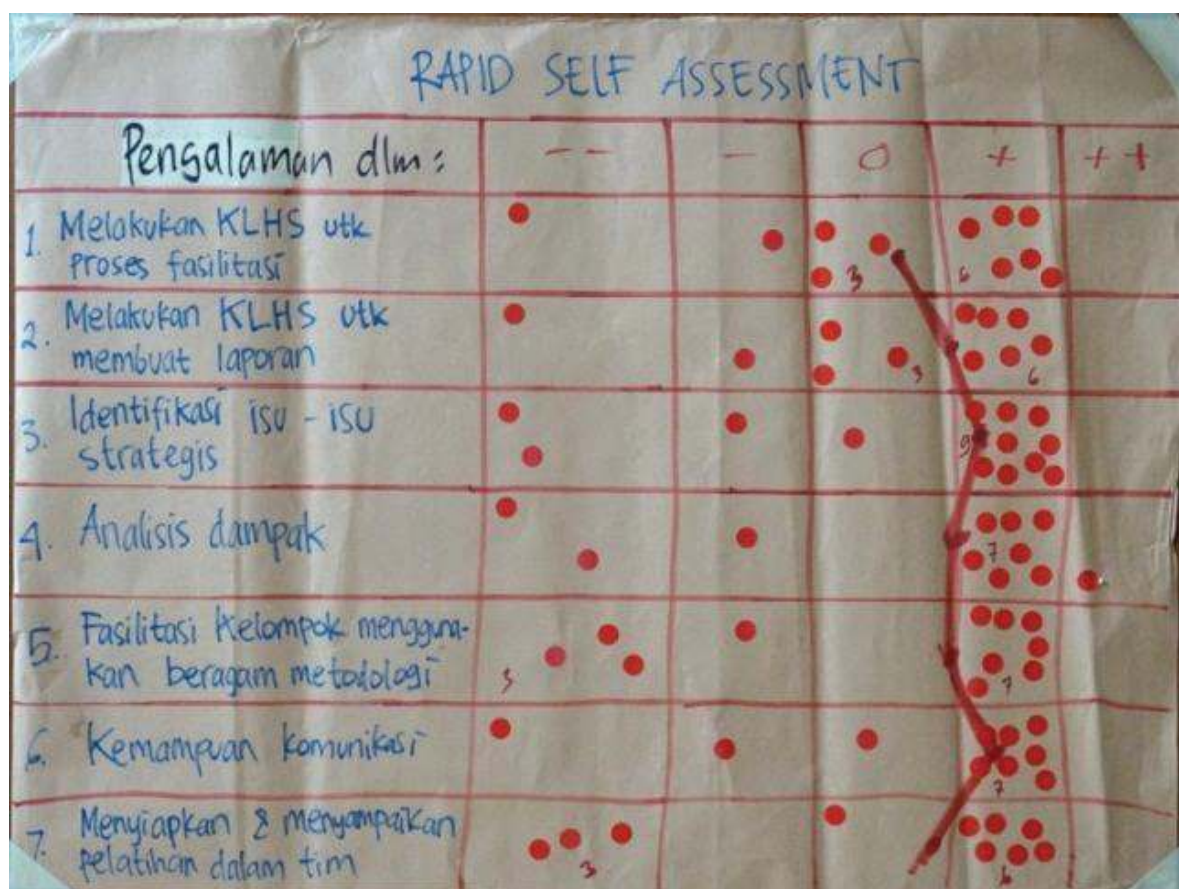 RAPID SELF ASSESSMENT
Pengalaman dlm: -- - O + ++
1. Melakukan KLHS utk
proses fasilitasi
3 6
2. Melakukan KLHS utk
membuat laporan
3 6
3. Identifikasi isu - isu
strategis
9
4. Analisis dampak
7
5. Fasilitasi Kelompok mengguna-
kan beragam metodologi
3 7
6. Kemampuan komunikasi
7
7. Menyiapkan & menyampaikan
pelatihan dalam tim
3 6